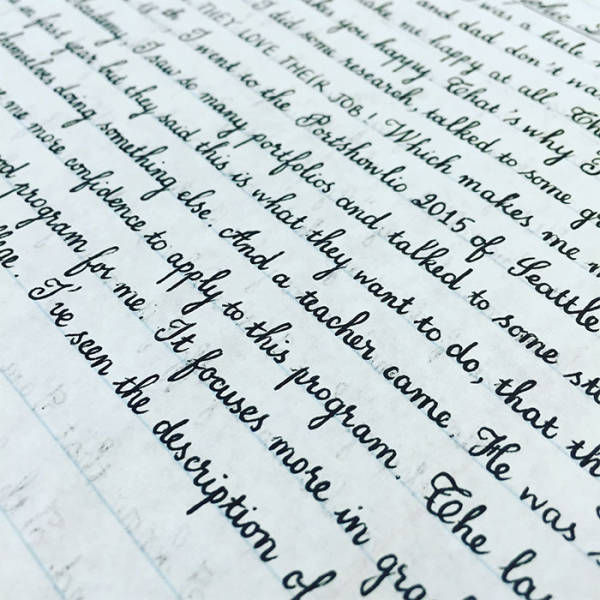 was a little
and dad don't wa
me happy at all.
you happy. That's why I
I did some research, talked to some gr
THEY LOVE THEIR JOB! Which makes me m
I went to the Portshowlio 2015 of Seattle
I saw so many portfolios and talked to some stu
first year but they said this is what they want to do, that th
themselves doing something else. And a teacher came. He was s
me more confidence to apply to this program. The la
program for me. It focuses more in gra
I've seen the description of